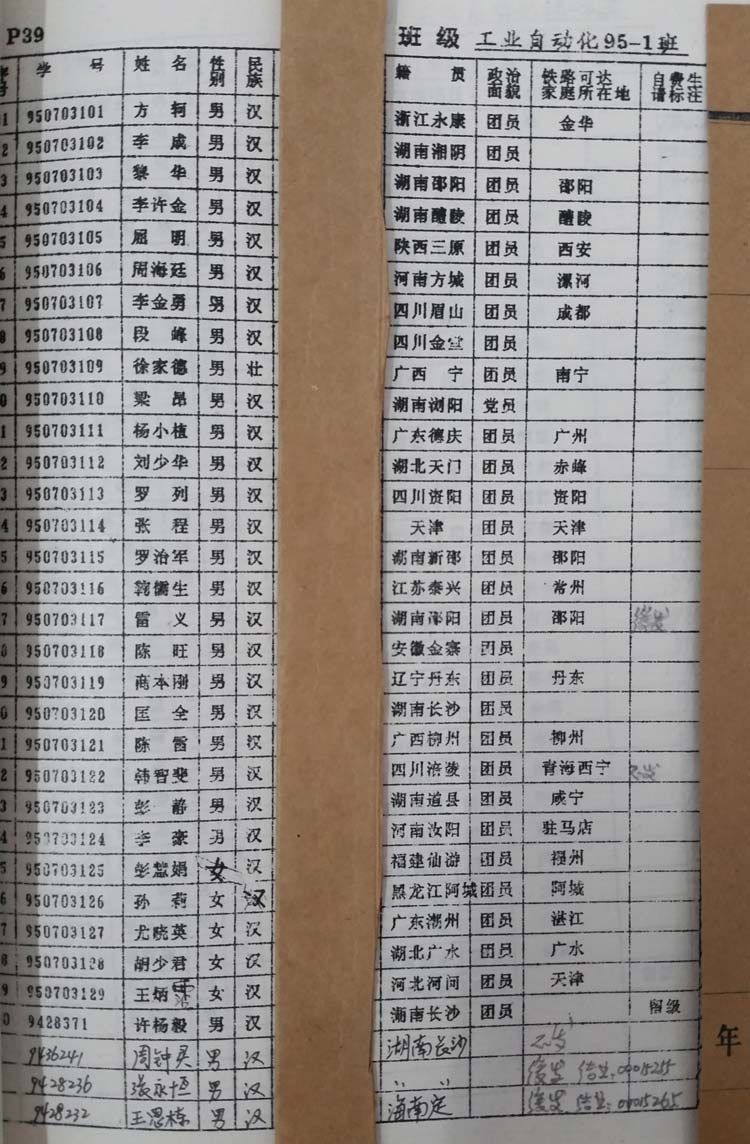 P39 班级 工业自动化95-1班
号 学号 姓名 性别 民族 籍贯 政治面貌 铁路可达家庭所在地 自费生请标注
1 950703101 方轲 男 汉 浙江永康 团员 金华
2 950703102 李成 男 汉 湖南湘阴 团员
3 950703103 黎华 男 汉 湖南邵阳 团员 邵阳
4 950703104 李许金 男 汉 湖南醴陵 团员 醴陵
5 950703105 屈明 男 汉 陕西三原 团员 西安
6 950703106 周海廷 男 汉 河南方城 团员 漯河
7 950703107 李金勇 男 汉 四川眉山 团员 成都
8 950703108 段峰 男 汉 四川金堂 团员
9 950703109 徐家德 男 壮 广西 宁 团员 南宁
0 950703110 梁昂 男 汉 湖南浏阳 党员
1 950703111 杨小植 男 汉 广东德庆 团员 广州
2 950703112 刘少华 男 汉 湖北天门 团员 赤峰
3 950703113 罗列 男 汉 四川资阳 团员 资阳
4 950703114 张程 男 汉 天津 团员 天津
5 950703115 罗治军 男 汉 湖南新邵 团员 邵阳
6 950703116 儒生 男 汉 江苏泰兴 团员 常州
7 950703117 雷义 男 汉 湖南邵阳 团员 邵阳
8 950703118 陈旺 男 汉 安徽金寨 团员
9 950703119 商本刚 男 汉 辽宁丹东 团员 丹东
0 950703120 匡全 男 汉 湖南长沙 团员
1 950703121 陈雷 男 汉 广西柳州 团员 柳州
2 950703122 韩智斐 男 汉 四川涪陵 团员 青海西宁
3 950703123 彭静 男 汉 湖南道县 团员 咸宁
4 950703124 李豪 男 汉 河南汝阳 团员 驻马店
5 950703125 彭慧娟 女 汉 福建仙游 团员 福州
6 950703126 孙莉 女 汉 黑龙江阿城 团员 阿城
7 950703127 尤晓英 女 汉 广东潮州 团员 湛江
8 950703128 胡少君 女 汉 湖北广水 团员 广水
9 950703129 王炳霈 女 汉 河北河间 团员 天津
0 9428371 许杨毅 男 汉 湖南长沙 团员 留级
9436241 周钟灵 男 汉 湖南长沙
9428236 张永恒 男 汉 〃 〃 结业:00015255
9428232 王思栋 男 汉 海南定 结业:00015265
年